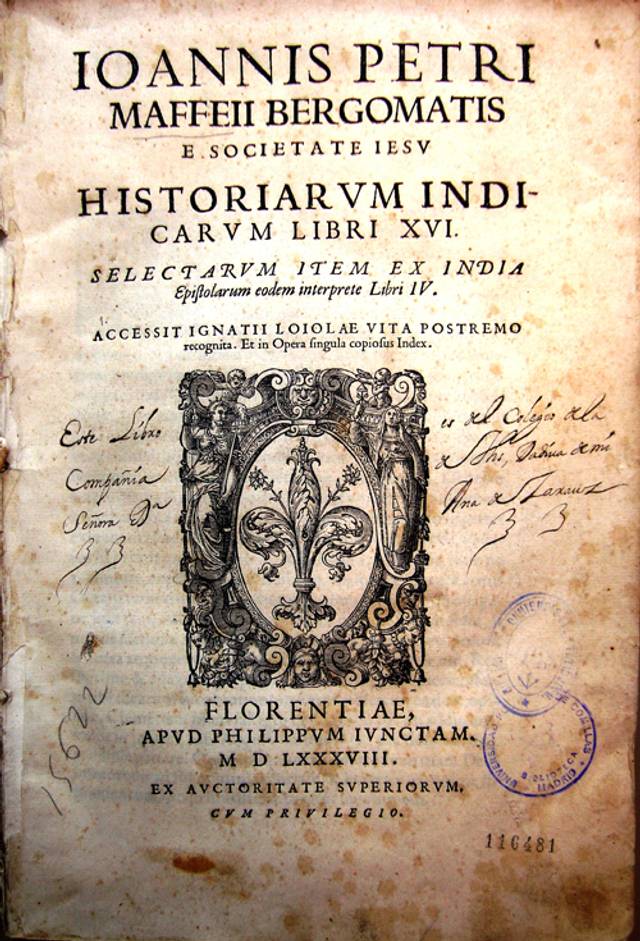 IOANNIS PETRI
MAFFEII BERGOMATIS
E SOCIETATE IESV
HISTORIARVM INDI-
CARVM LIBRI XVI.
SELECTARVM ITEM EX INDIA
Epistolarum eodem interprete Libri IV.
ACCESSIT IGNATII LOIOLAE VITA POSTREMO
recognita. Et in Opera singula copiosus Index.
Este Libro es del Colegio de la
Compañia de Jhs, Dadiua de mi
Señora Da Ana de
FLORENTIAE,
APVD PHILIPPVM IVNCTAM.
M D LXXXVIII.
EX AVCTORITATE SVPERIORVM.
CVM PRIVILEGIO.
15622
BIBLIOTECA
MADRID
116481